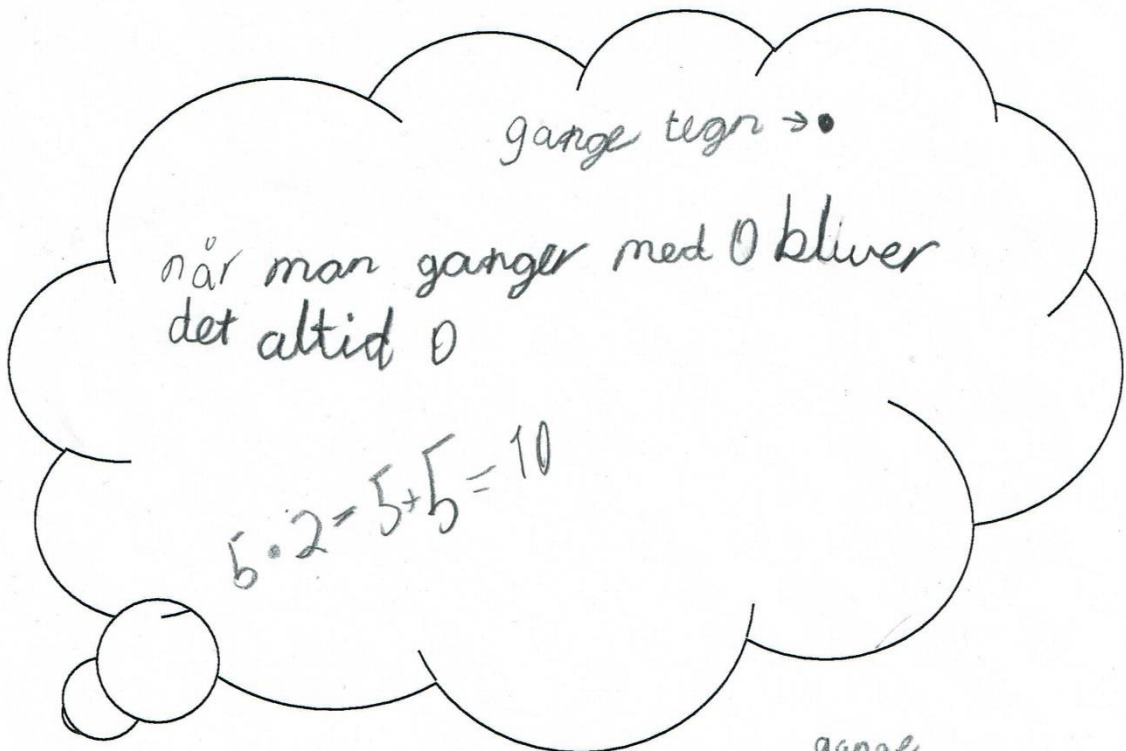 gange tegn → •
når man ganger med 0 bliver
det altid 0
5 • 2 = 5+5 = 10
gange